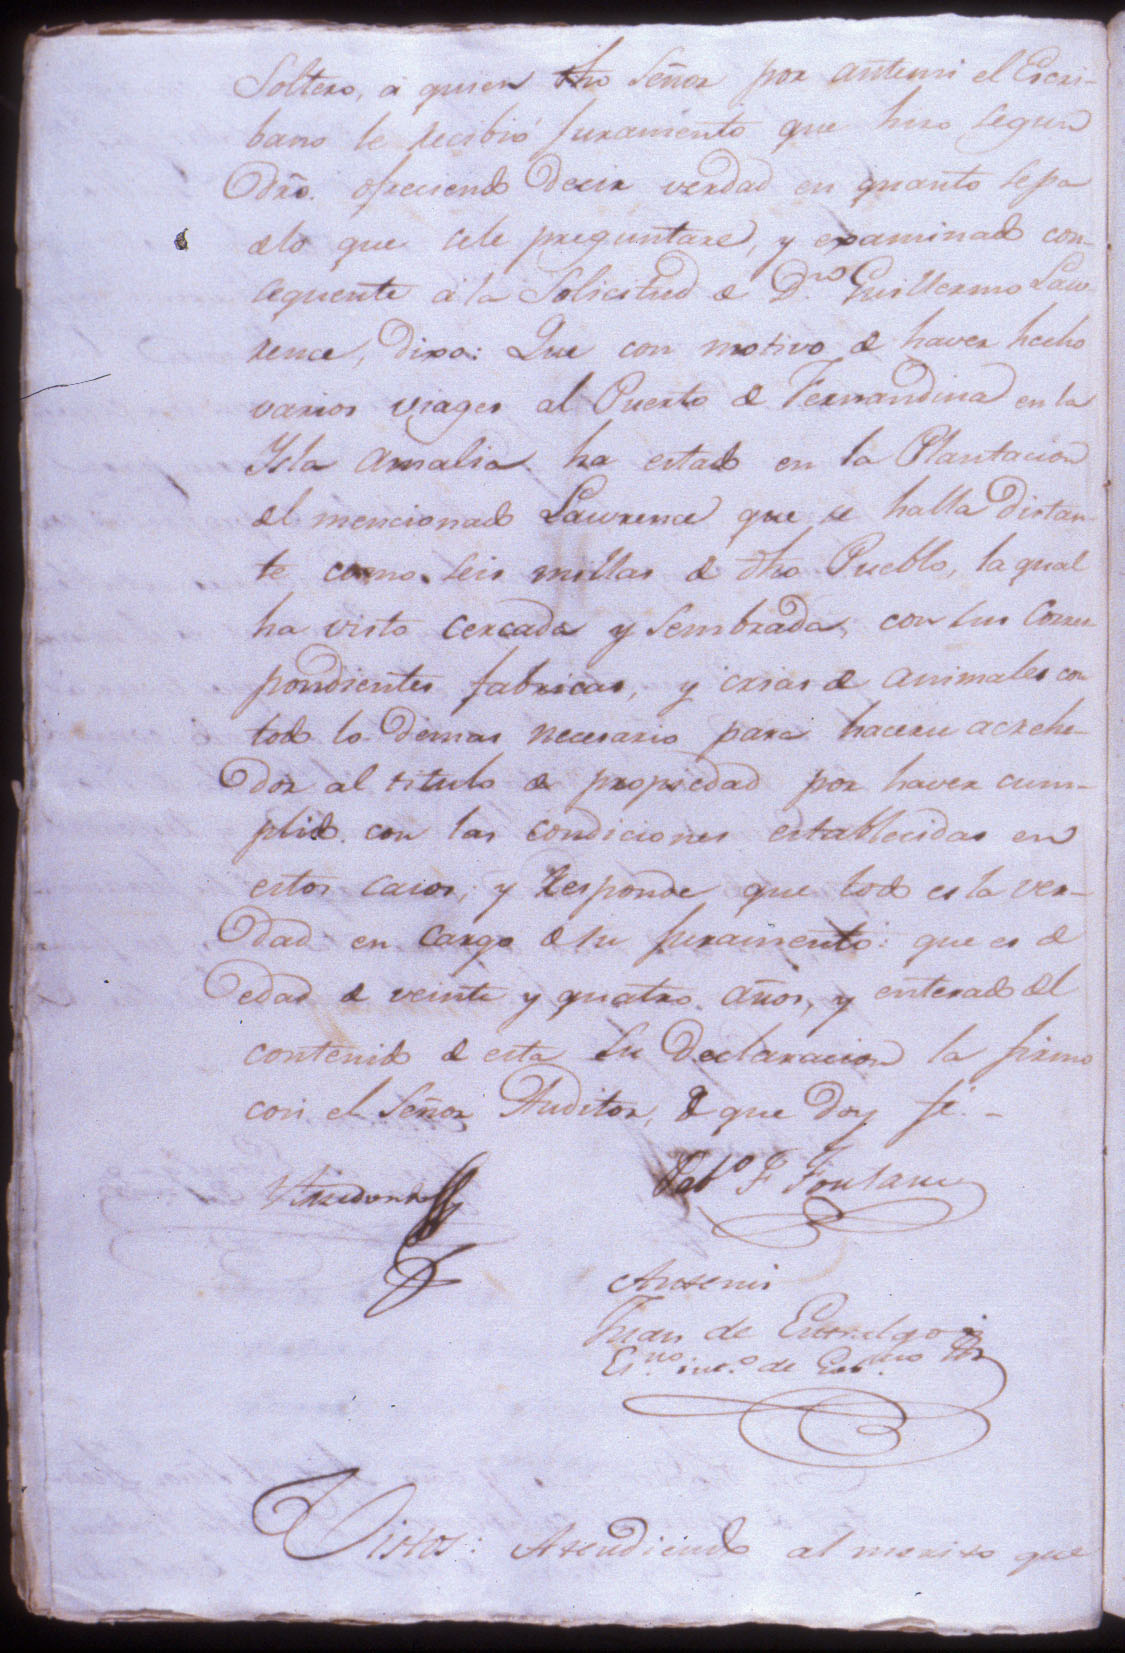 Soltero, á quien dho Señor por antemi el Escri-
bano le recibió Juramento que hizo segun
Dro. ofreciendo Decir verdad en quanto sepa
delo que sele preguntare, y examinado con-
cequente á la Solicitud de Dn. Guillermo Law-
rence, dixo: Que con motivo de haver hecho
varios viages al Puerto de Fernandina en la
Ysla Amalia ha estado en la Plantacion
del mencionado Lawrence que se halla Distan-
te como seis millas de dho Pueblo, la qual
ha visto cercada y sembrada, con sus Corres
pondientes fabricas, y crias de animales con
todo lo demas necesario para hacerse acrehe-
dor al titulo de propiedad por haver cum-
plido con las condiciones establecidas en
estos casos; y Responde que todo es la ver-
dad en cargo de su Juramento: que es de
edad de veinte y quatro años, y enterado del
contenido de esta su Declaracion la firmo
con el Señor Auditor, de que Doy fé.-
Fab.o F Fontane
Antemi
Juan de Entralgo
Es.no int.o de Gov.no
Vistos: Atendiendo al merito que